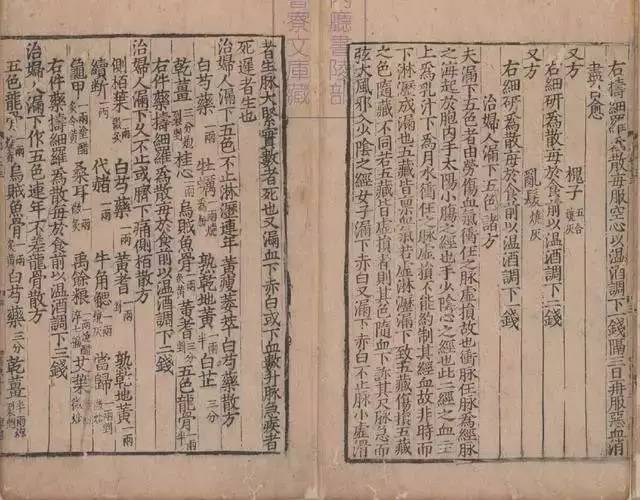 右擣細羅為散每服空心以温酒調下一錢隔三日再服惡血消
盡旦愈
又方
槐子 五合 燒灰
右細研為散每於食前以温酒調下二錢
又方
亂髮 燒灰
右細研為散每於食前以温酒調下一錢
治婦人漏下五色諸方
夫漏下五色者由勞傷血氣衝任二脉虚損故也衝脉任脉為經脉
之海起於胞内手太陽小腸之經也手少陰心之經也此二經之血主
上為乳汁下為月水衝任之脉虚損不能約制其經血故非時而
下淋瀝成漏也五藏皆禀血氣若虚淋瀝漏下致五藏傷損五藏
之色隨藏不同若五藏皆虚損者則其色隨血下診其尺脉急而
弦大風邪入少陰之經女子漏下赤白又漏下赤白不止脉小虚滑
者生脉大緊實數者死也又漏血下赤白或下血數升脉急疾者
死遲者生也
治婦人漏下五色不止淋瀝連年黄瘦萎萃白芍藥散方
白芍藥 牡蠣 熟乾地黄 一兩 白芷 三分
乾薑 桂心 烏賊魚骨 黄耆 五色龍骨
右件藥擣細羅為散每於食前以温酒調下二錢
治婦人漏下久不止或臍下痛側栢散方
側栢葉 白芍藥 一兩 黄耆 熟乾地黄 一兩
續斷 代赭 一兩 牛角䚡 當歸
龜甲 桑耳 禹餘粮 艾葉
右件藥擣細羅為散每於食前以温酒調下三錢
治婦人漏下作五色連年不差龍骨散方
五色龍骨 烏賊魚骨 白芍藥 三分 乾薑